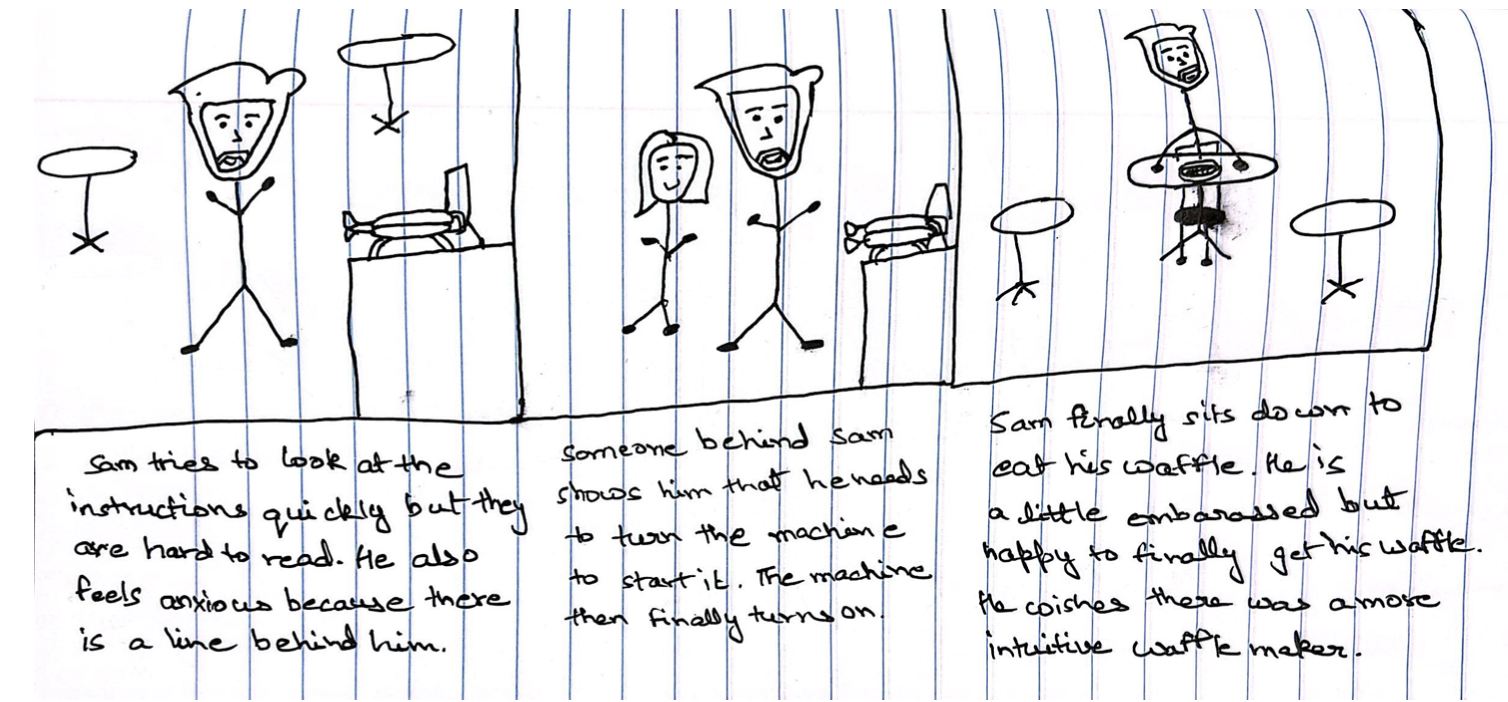 Sam tries to look at the
instructions quickly but they
are hard to read. He also
feels anxious because there
is a line behind him.
Someone behind Sam
shows him that he needs
to turn the machine
to start it. The machine
then finally turns on.
Sam finally sits down to
eat his waffle. He is
a little embarassed but
happy to finally get his waffle.
He wishes there was a more
intuitive waffle maker.